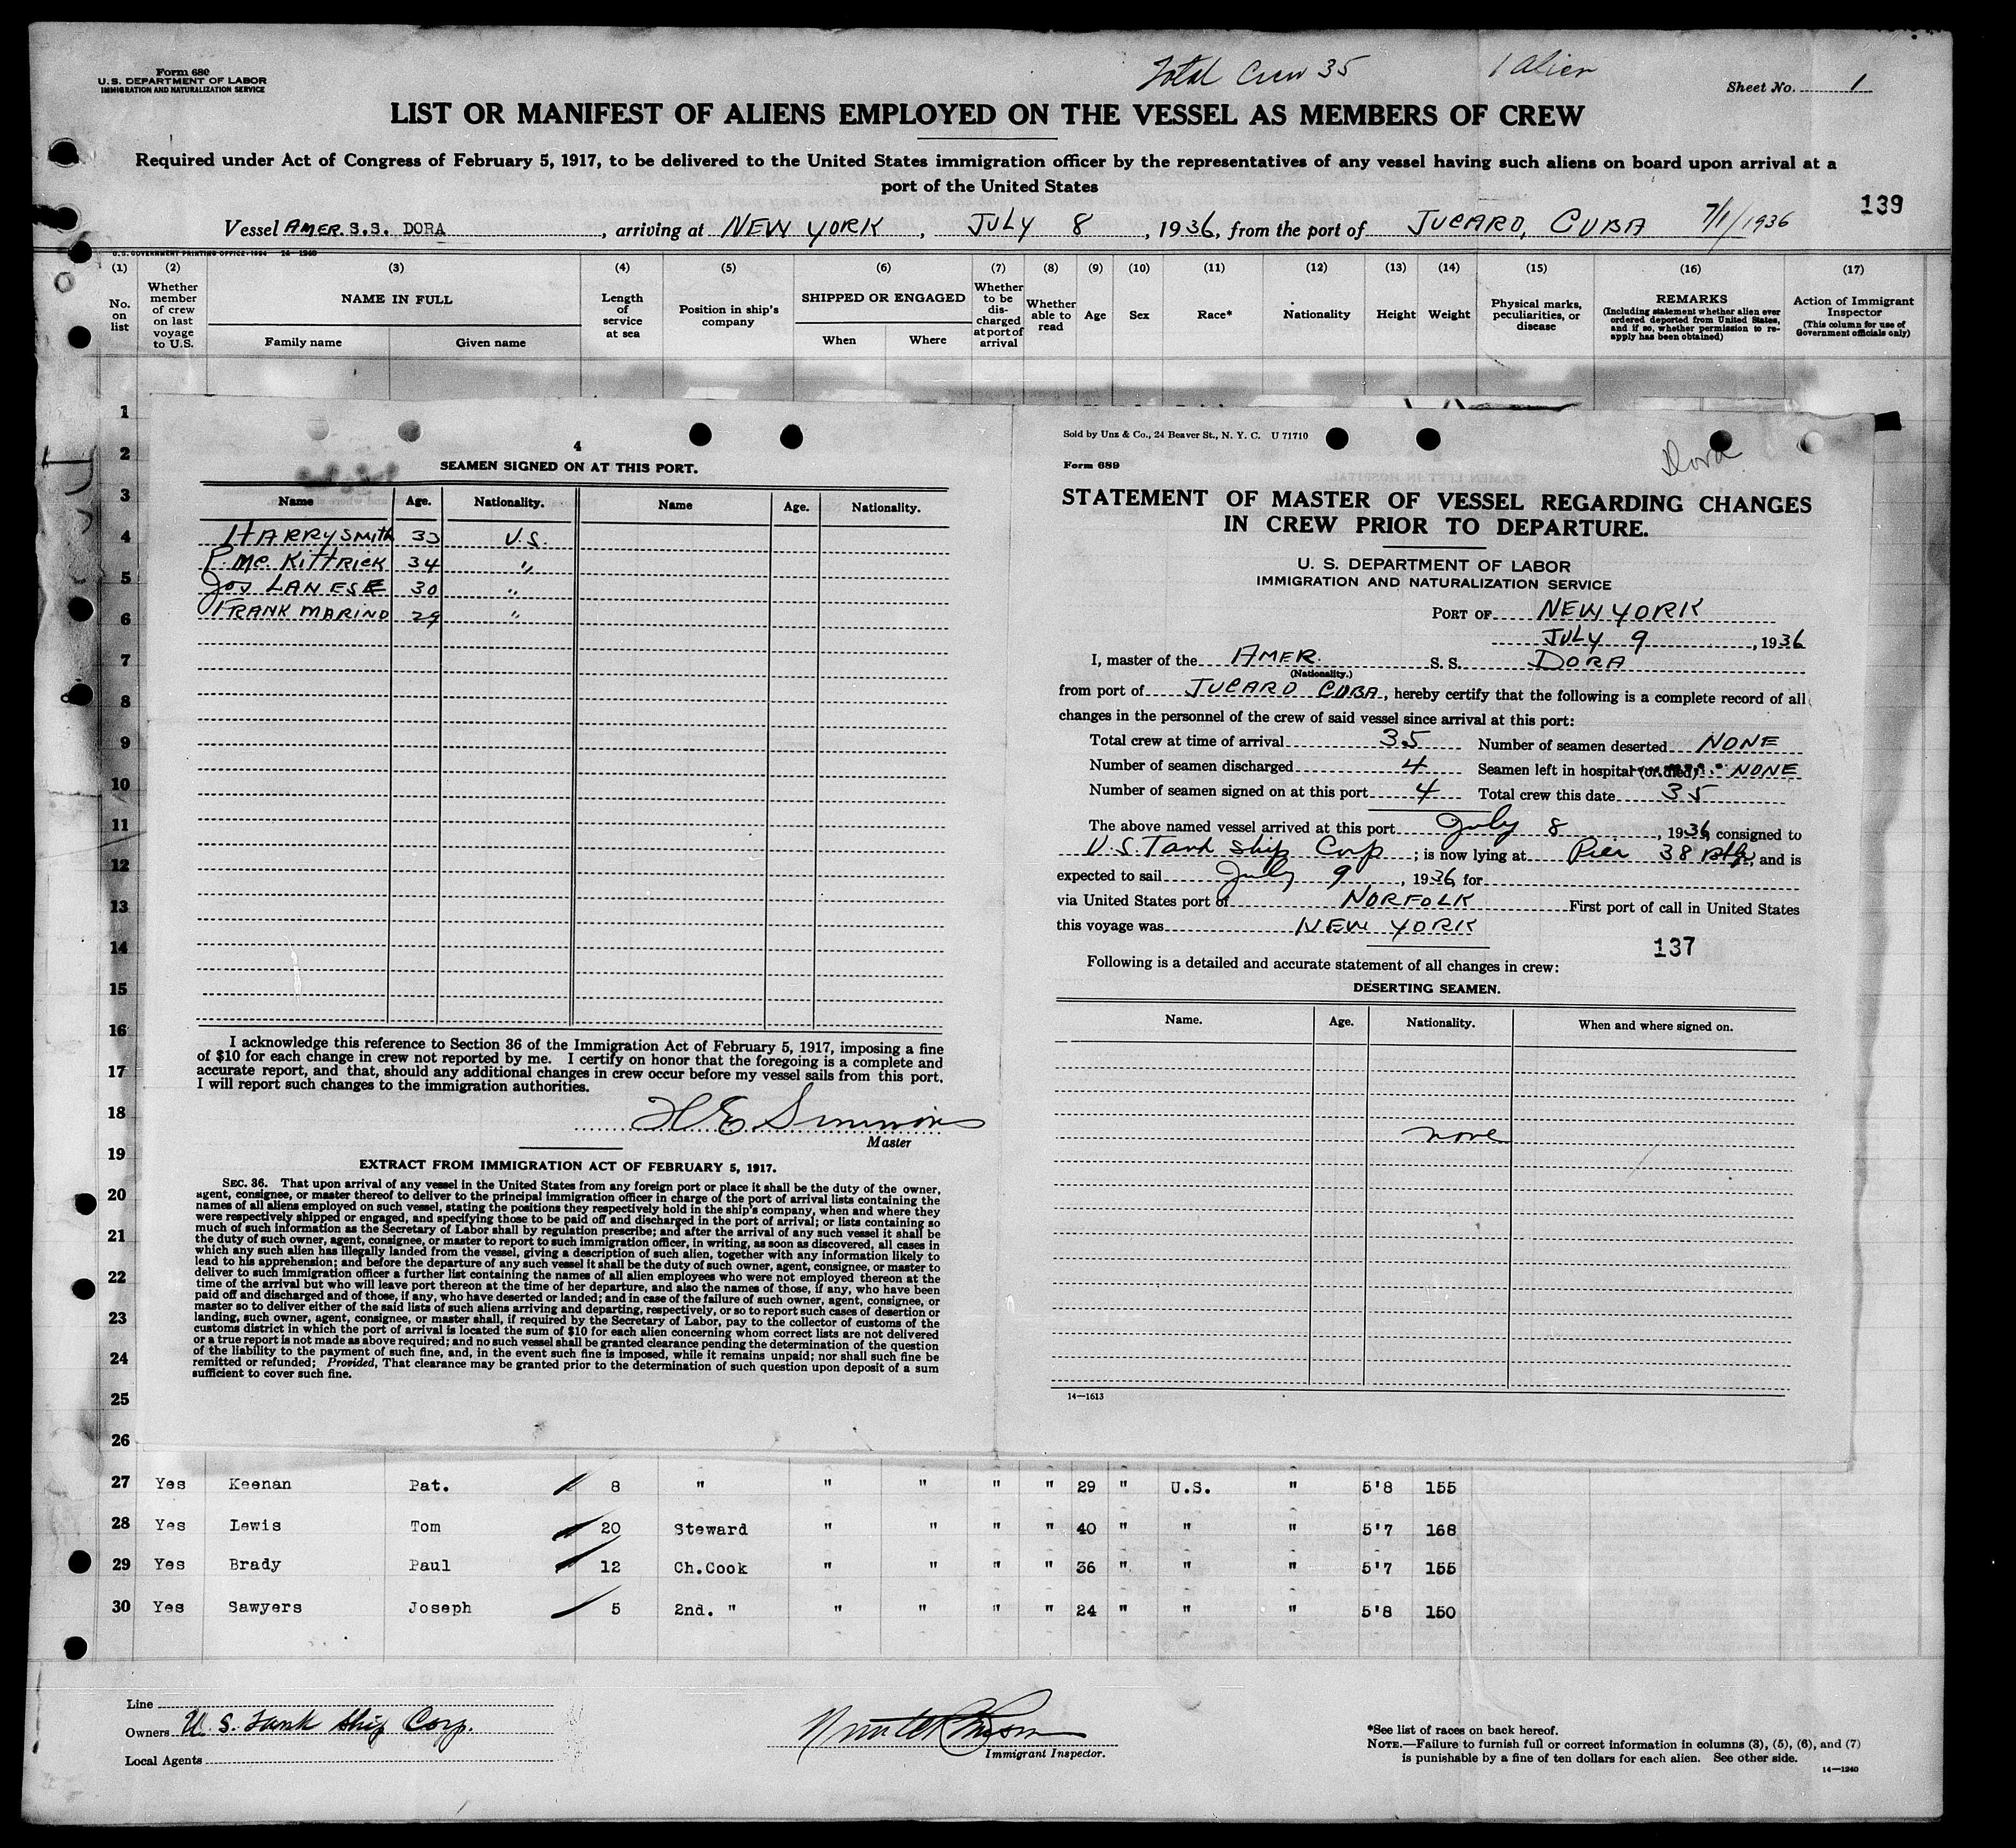 Form 680
U. S. DEPARTMENT OF LABOR
IMMIGRATION AND NATURALIZATION SERVICE
Total Crew 35
1 Alien
Sheet No. 1
LIST OR MANIFEST OF ALIENS EMPLOYED ON THE VESSEL AS MEMBERS OF CREW
Required under Act of Congress of February 5, 1917, to be delivered to the United States immigration officer by the representatives of any vessel having such aliens on board upon arrival at a
port of the United States
139
Vessel AMER. S.S. DORA, arriving at NEW YORK, JULY 8, 1936, from the port of JUCARO, CUBA 7/1/1936
U.S. GOVERNMENT PRINTING OFFICE: 1934 14—1240
(1) (2) (3) (4) (5) (6) (7) (8) (9) (10) (11) (12) (13) (14) (15) (16) (17)
No. on list
Whether member of crew on last voyage to U.S.
NAME IN FULL
Family name
Given name
Length of service at sea
Position in ship's company
SHIPPED OR ENGAGED
When
Where
Whether to be discharged at port of arrival
Whether able to read
Age
Sex
Race*
Nationality
Height
Weight
Physical marks, peculiarities, or disease
REMARKS
(Including statement whether alien ever ordered deported from United States, and if so, whether permission to re-apply has been obtained)
Action of Immigrant Inspector
(This column for use of Government officials only)
1
2
3
4
5
6
7
8
9
10
11
12
13
14
15
16
17
18
19
20
21
22
23
24
25
26
4
SEAMEN SIGNED ON AT THIS PORT.
Name Age. Nationality. Name Age. Nationality.
HARRY SMITH 33 U.S.
P. Mc KITTRICK 34 "
JOS LANESE 30 "
FRANK MARINO 29 "
I acknowledge this reference to Section 36 of the Immigration Act of February 5, 1917, imposing a fine
of $10 for each change in crew not reported by me. I certify on honor that the foregoing is a complete and
accurate report, and that, should any additional changes in crew occur before my vessel sails from this port,
I will report such changes to the immigration authorities.
H E Simmons
Master
EXTRACT FROM IMMIGRATION ACT OF FEBRUARY 5, 1917.
SEC. 36. That upon arrival of any vessel in the United States from any foreign port or place it shall be the duty of the owner,
agent, consignee, or master thereof to deliver to the principal immigration officer in charge of the port of arrival lists containing the
names of all aliens employed on such vessel, stating the positions they respectively hold in the ship's company, when and where they
were respectively shipped or engaged, and specifying those to be paid off and discharged in the port of arrival; or lists containing so
much of such information as the Secretary of Labor shall by regulation prescribe; and after the arrival of any such vessel it shall be
the duty of such owner, agent, consignee, or master to report to such immigration officer, in writing, as soon as discovered, all cases in
which any such alien has illegally landed from the vessel, giving a description of such alien, together with any information likely to
lead to his apprehension; and before the departure of any such vessel it shall be the duty of such owner, agent, consignee, or master to
deliver to such immigration officer a further list containing the names of all alien employees who were not employed thereon at the
time of the arrival but who will leave port thereon at the time of her departure, and also the names of those, if any, who have been
paid off and discharged and of those, if any, who have deserted or landed; and in case of the failure of such owner, agent, consignee, or
master so to deliver either of the said lists of such aliens arriving and departing, respectively, or so to report such cases of desertion or
landing, such owner, agent, consignee, or master shall, if required by the Secretary of Labor, pay to the collector of customs of the
customs district in which the port of arrival is located the sum of $10 for each alien concerning whom correct lists are not delivered
or a true report is not made as above required; and no such vessel shall be granted clearance pending the determination of the question
of the liability to the payment of such fine, and, in the event such fine is imposed, while it remains unpaid; nor shall such fine be
remitted or refunded; Provided, That clearance may be granted prior to the determination of such question upon deposit of a sum
sufficient to cover such fine.
Sold by Unz & Co., 24 Beaver St., N. Y. C. U 71710
Dora
Form 689
STATEMENT OF MASTER OF VESSEL REGARDING CHANGES
IN CREW PRIOR TO DEPARTURE.
U. S. DEPARTMENT OF LABOR
IMMIGRATION AND NATURALIZATION SERVICE
PORT OF NEW YORK
JULY 9, 1936
I, master of the AMER. S. S. DORA
(Nationality.)
from port of JUCARO CUBA, hereby certify that the following is a complete record of all
changes in the personnel of the crew of said vessel since arrival at this port:
Total crew at time of arrival 35 Number of seamen deserted NONE
Number of seamen discharged 4 Seamen left in hospital (or died) NONE
Number of seamen signed on at this port 4 Total crew this date 35
The above named vessel arrived at this port July 8, 1936, consigned to
U.S Tank Ship Corp; is now lying at Pier 38, and is
expected to sail July 9, 1936, for
via United States port of NORFOLK First port of call in United States
this voyage was NEW YORK
137
Following is a detailed and accurate statement of all changes in crew:
DESERTING SEAMEN.
Name. Age. Nationality. When and where signed on.
none
14—1613
27 Yes Keenan Pat. 8 " " " " " 29 " U.S. " 5'8 155
28 Yes Lewis Tom 20 Steward " " " " 40 " " " 5'7 168
29 Yes Brady Paul 12 Ch.Cook " " " " 36 " " " 5'7 155
30 Yes Sawyers Joseph 5 2nd. " " " " " 24 " " " 5'8 150
Line
Owners U. S. Tank Ship Corp.
Local Agents
Immigrant Inspector.
*See list of races on back hereof.
NOTE.—Failure to furnish full or correct information in columns (3), (5), (6), and (7)
is punishable by a fine of ten dollars for each alien. See other side.
14—1240